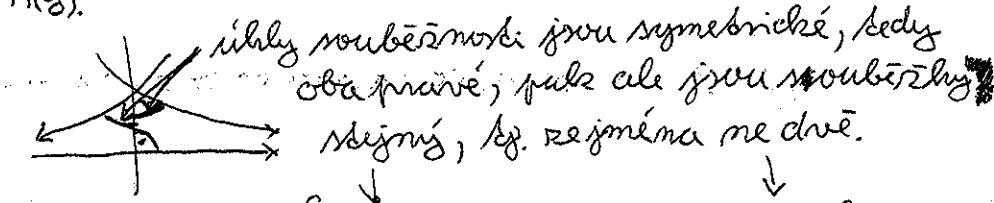 úhly souběžnosti jsou symetrické, tedy
oba pravé, pak ale jsou souběžky
stejný, tj. zejména ne dvě.